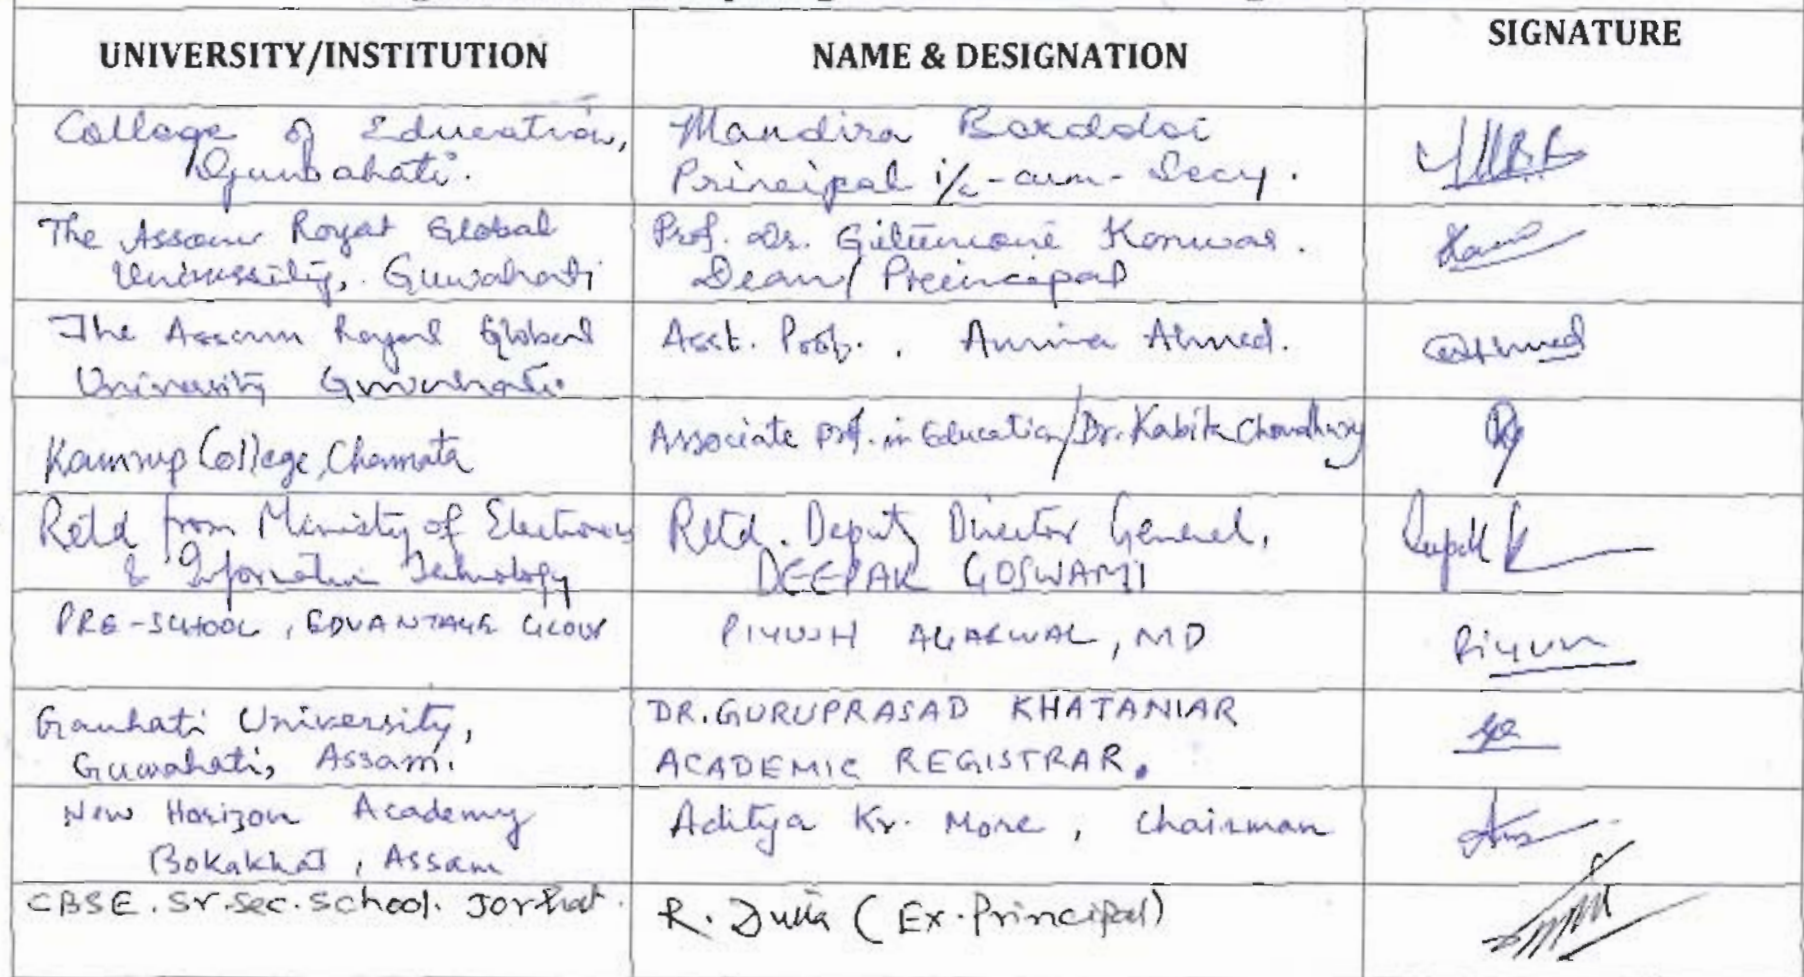 UNIVERSITY/INSTITUTION
NAME & DESIGNATION
SIGNATURE
College of Education,
Mandira Bordoloi
Principal i/c-cum-Secy.
The Assam Royal Global
University, Guwahati
Prof. Dr. Konwar.
Dean/ Principal
The Assam Royal Global
University Guwahati.
Asst. Prof., Amina Ahmed.
Ahmed
Kamrup College, Chamata
Associate Prof. in Education/Dr. Kabita Choudhury
Retd from Ministry of Electronics
& Information Technology
Retd. Deputy Director General,
DEEPAK GOSWAMI
PRE-SCHOOL, EDVANTAGE GROUP
PIYUSH AGARWAL, MD
Piyush
Gauhati University,
Guwahati, Assam.
DR. GURUPRASAD KHATANIAR
ACADEMIC REGISTRAR.
New Horizon Academy
Bokakhat, Assam
Aditya Kr. More, Chairman
CBSE. Sr. Sec. School. Jorhat.
R. Dutta (Ex-Principal)